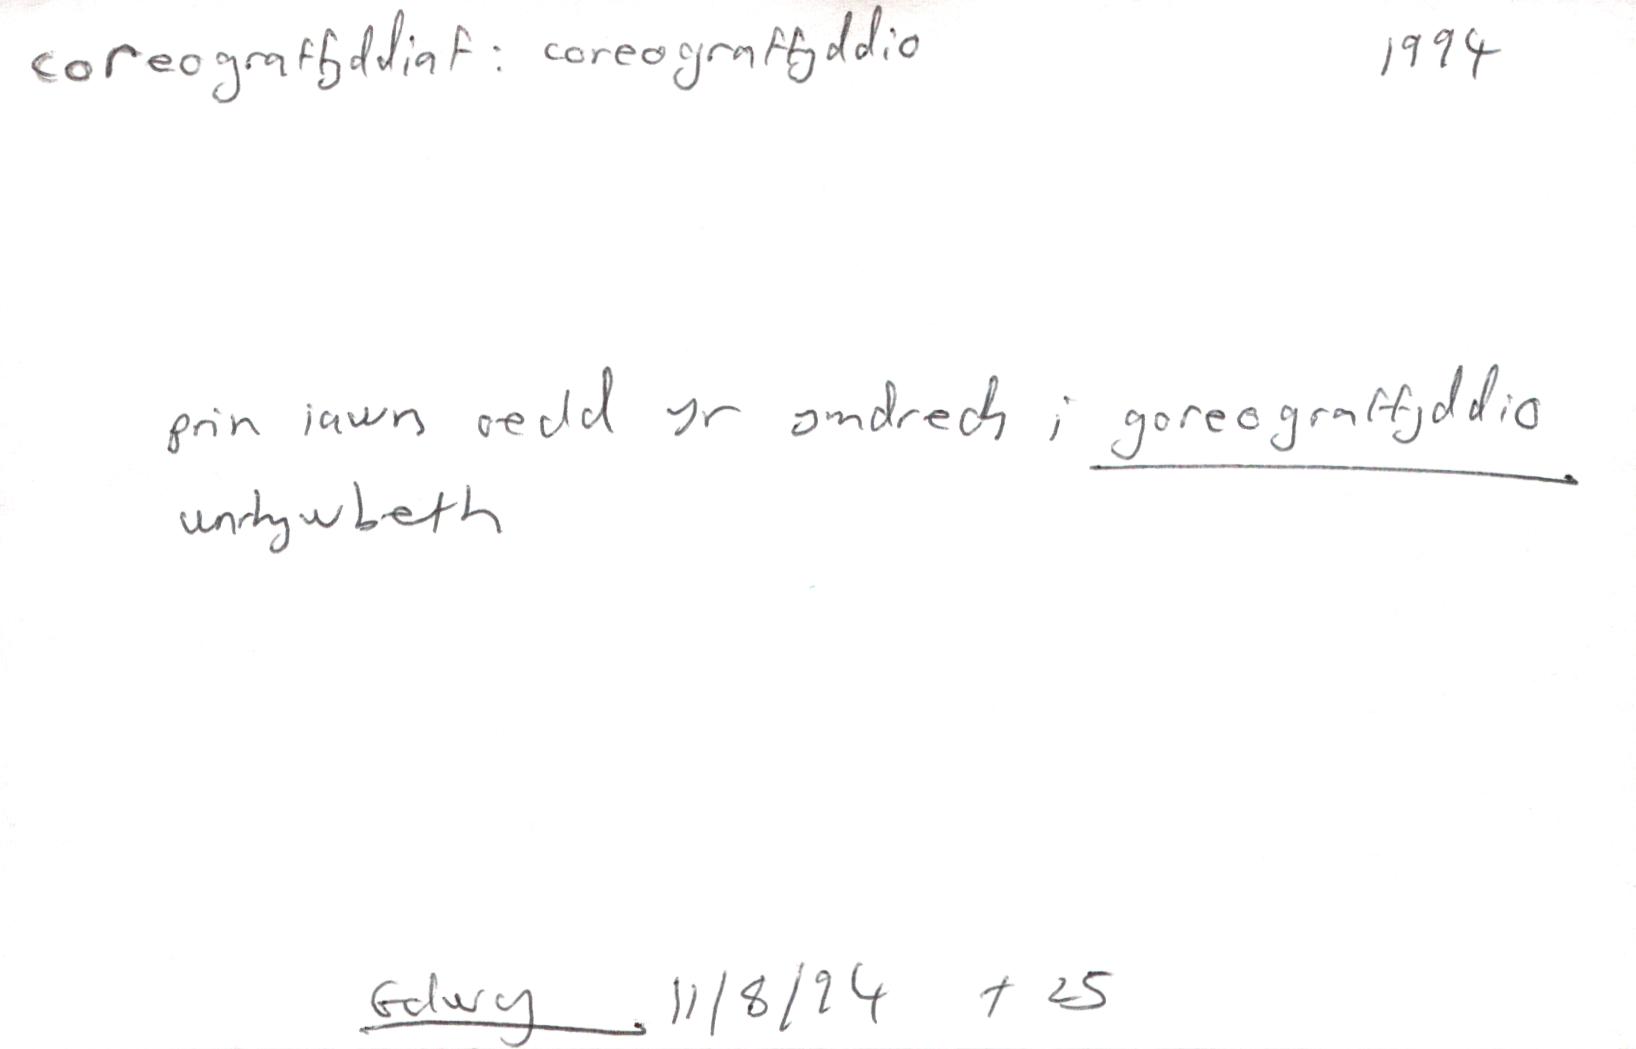 coreograffyddiaf: coreograffyddio 1994
prin iawn oedd yr ymdrech i goreograffyddio
unrhywbeth
Golwg 11/8/94 t 25